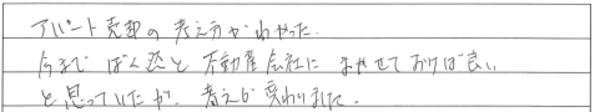 アパート売却の考え方がわかった.
今まで ばく然と 不動産会社に まかせておけば良い
と思っていたが、考えが変わりました.